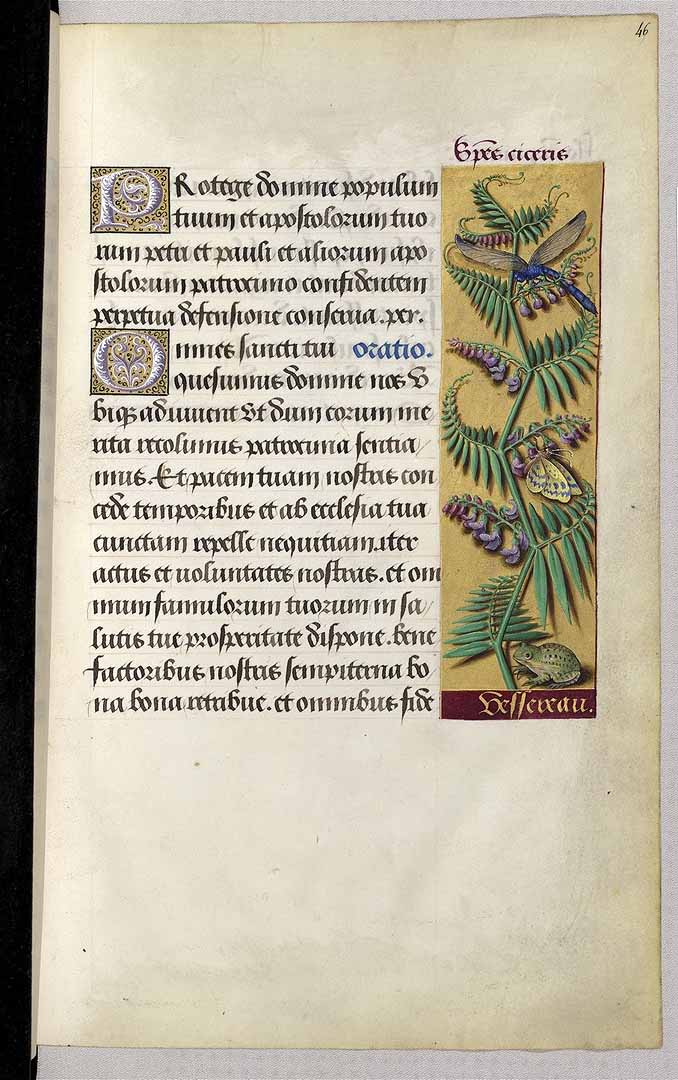 46
Spēs ciceris
PRotege domine populum
tuum et apostolorum tuo
rum petri et pauli et aliorum apo
stolorum patrocinio confidentem
perpetua defensione conserua . per.
Omnes sancti tui oratio.
quesumus domine nos v
biqȝ adiuuent vt dum eorum me
rita recolimus patrocinia sentia
mus. Et pacem tuam nostris con
cede temporibus et ab ecclesia tua
cunctam repelle nequitiam.iter
actus et uoluntates nostras. et om
nium famulorum tuorum in sa
lutis tue prosperitate dispone . bene
factoribus nostris sempiterna bo
na bona retribue. et omnibus fide
Vessereau.